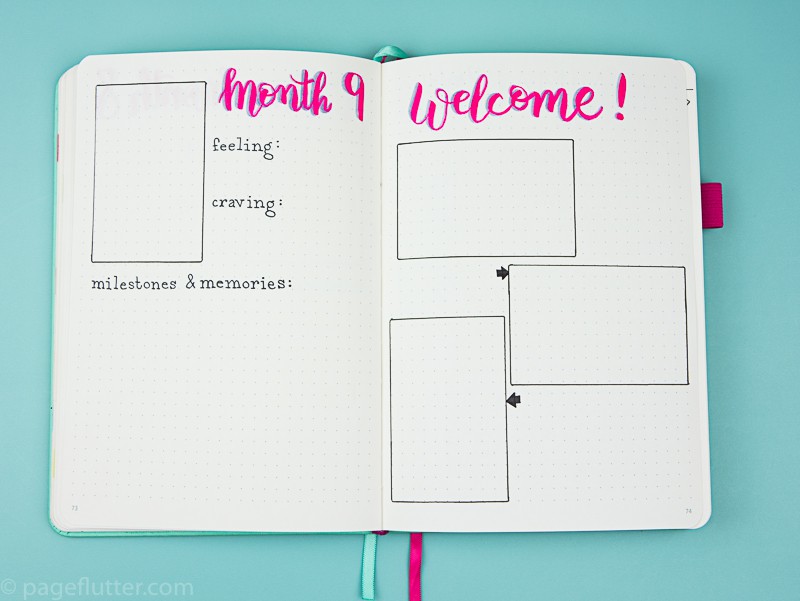 month 9
feeling:
craving:
milestones & memories:
73
welcome!
74
© pageflutter.com